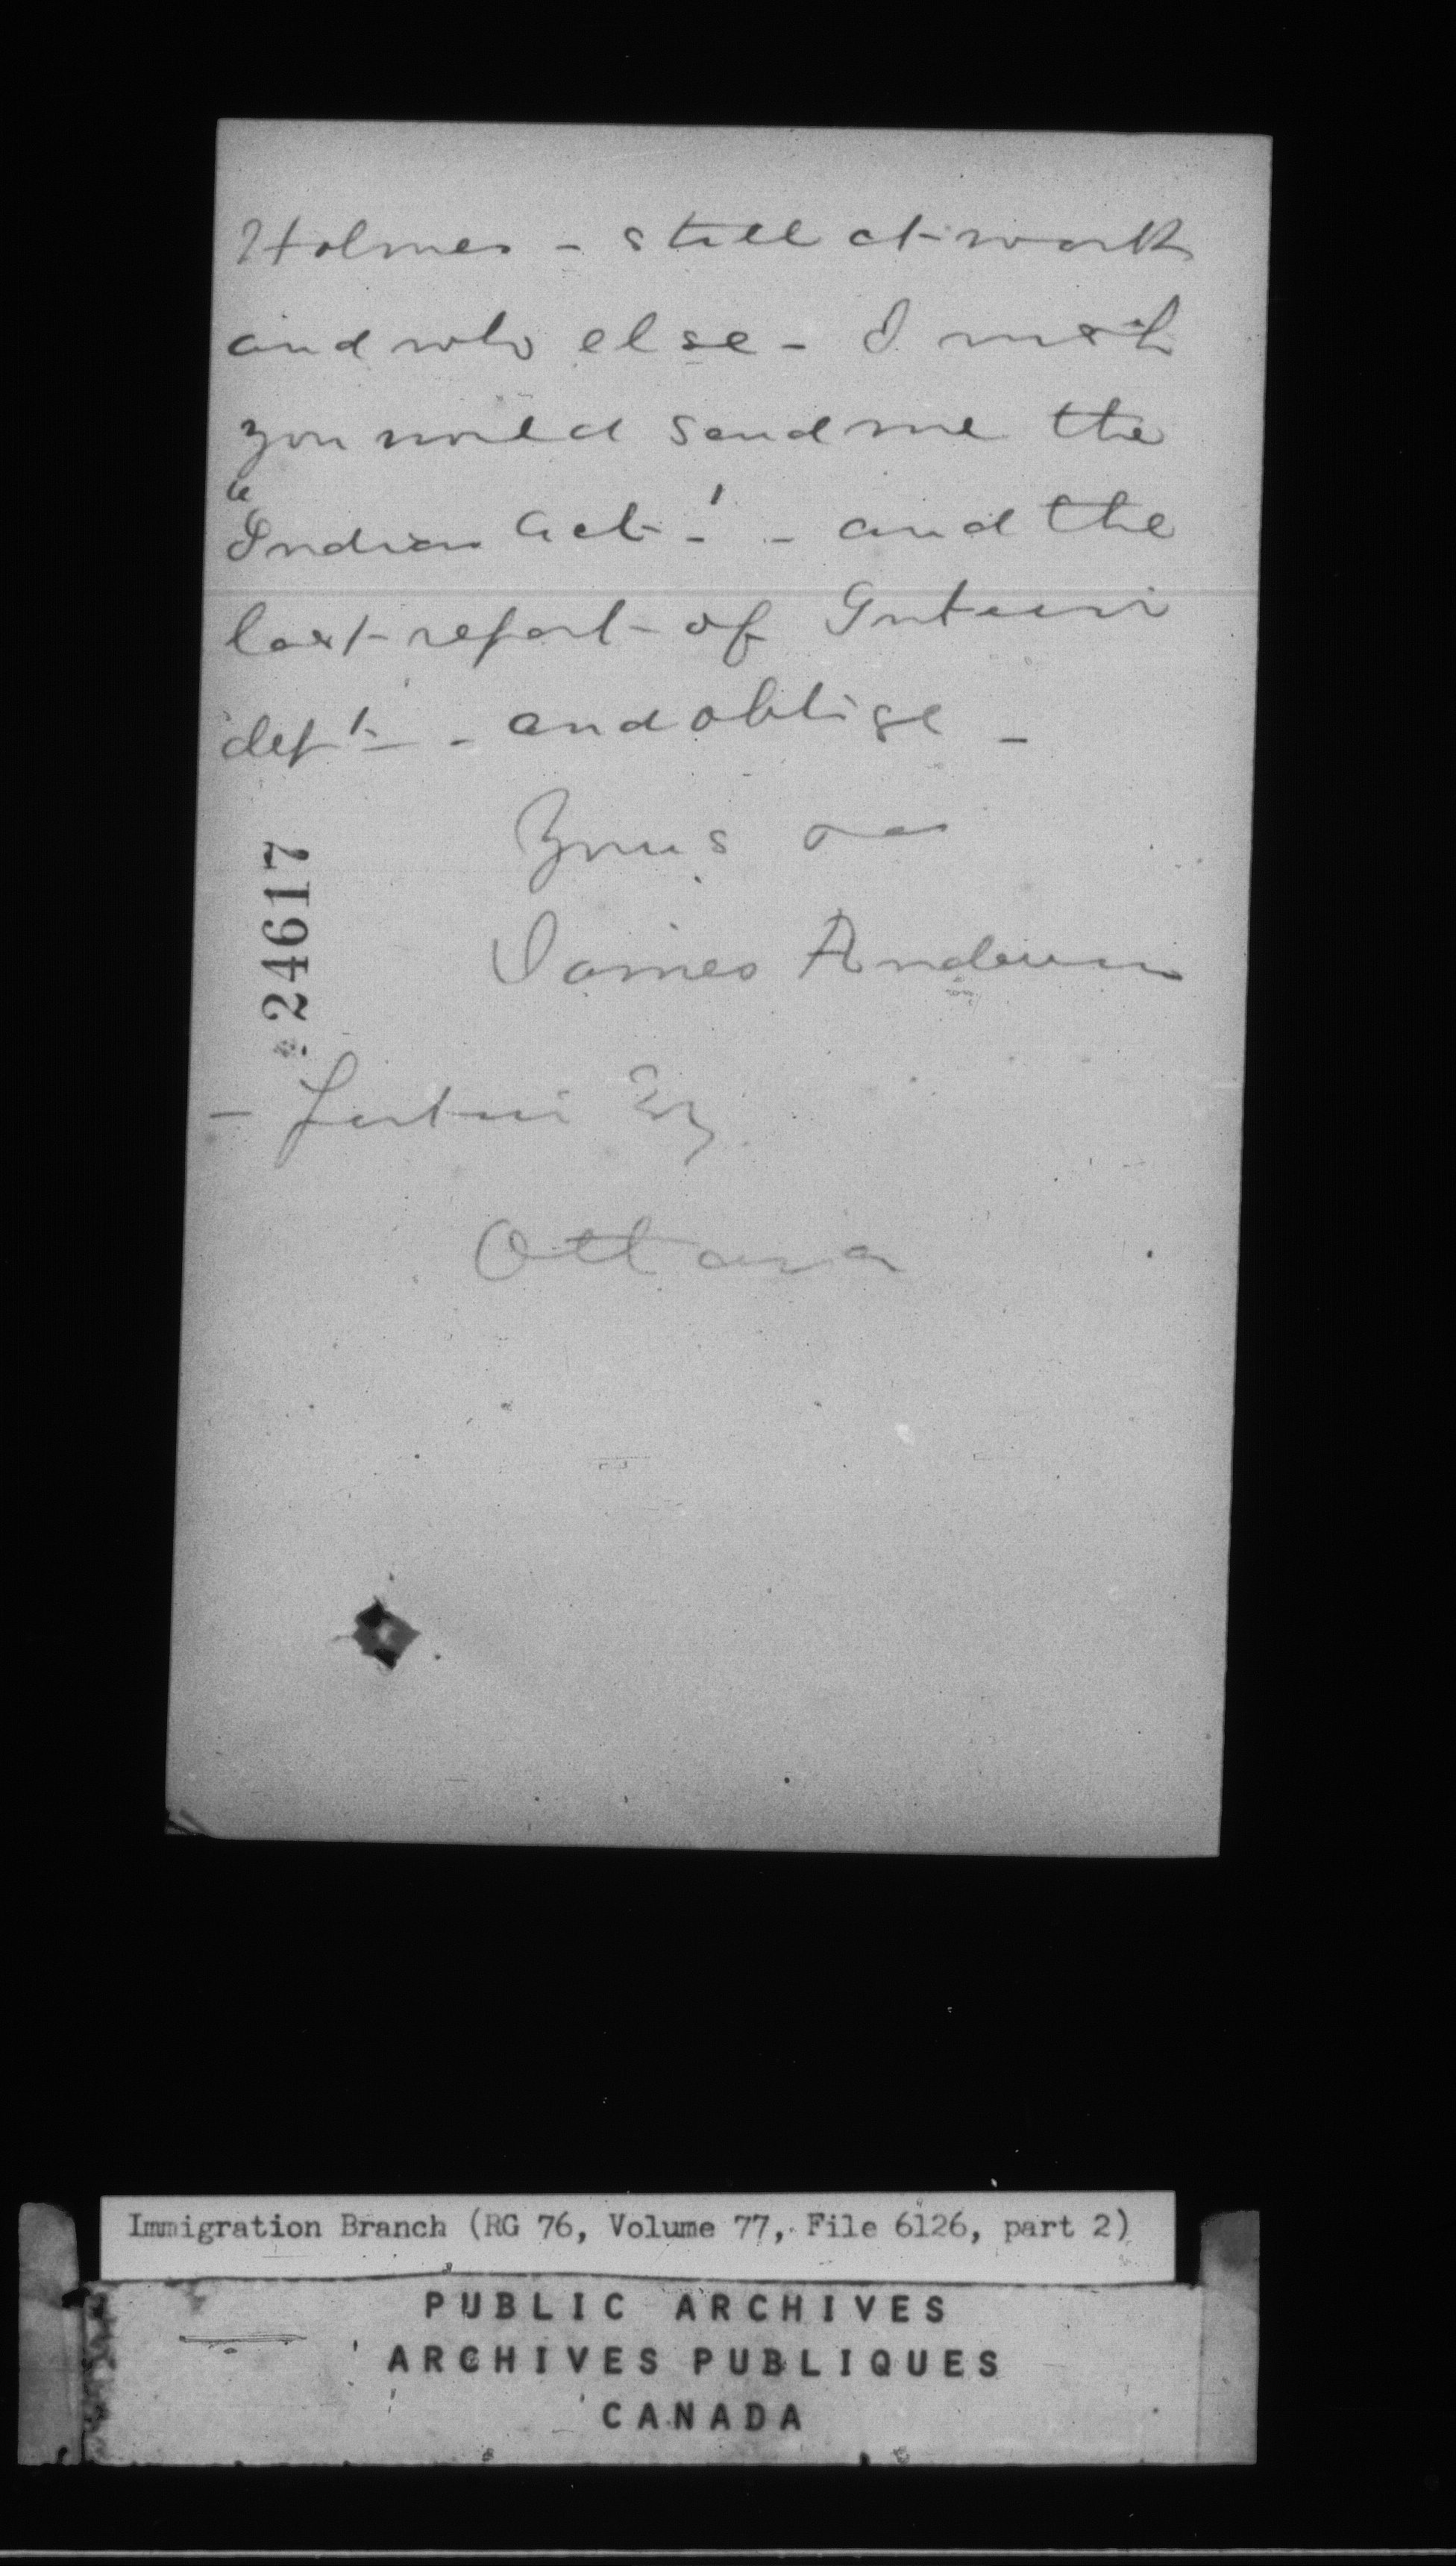 Holmes - still at work
and who else - I wish
you would send me the
"Indian Act" - and the
last report of Interior
dept - and oblige -
Yours
James Anderson
24617
- Esq
Ottawa
Immigration Branch (RG 76, Volume 77, File 6126, part 2)
PUBLIC ARCHIVES
ARCHIVES PUBLIQUES
CANADA